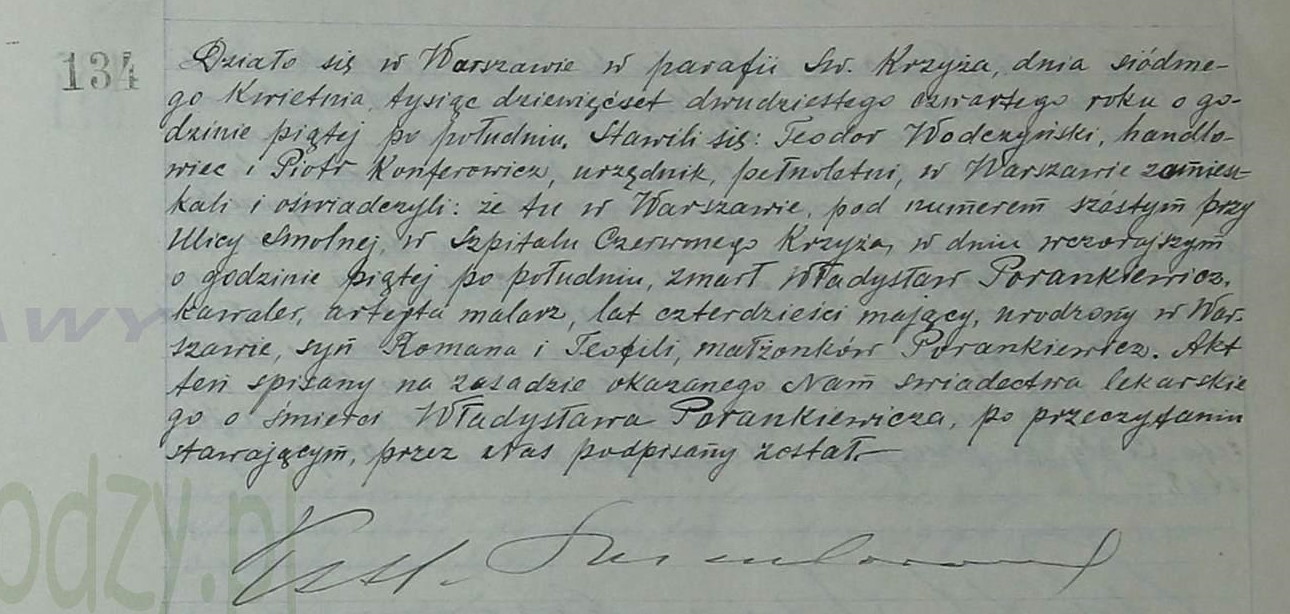 134
Działo się w Warszawie w parafii Św. Krzyża, dnia siódme-
go Kwietnia, tysiąc dziewięćset dwudziestego czwartego roku o go-
dzinie piątej po południu. Stawili się: Teodor Wodczyński, handlo-
wiec i Piotr Konferowicz, urzędnik, pełnoletni, w Warszawie zamiesz-
kali i oświadczyli: że tu w Warszawie, pod numerem szóstym przy
Ulicy Smolnej, w Szpitalu Czerwonego Krzyża, w dniu wczorajszym
o godzinie piątej po południu, zmarł Władysław Porankiewicz,
kawaler, artysta malarz, lat czterdzieści mający, urodzony w War-
szawie, syn Romana i Teofili, małżonków Porankiewicz. Akt
ten spisany na zasadzie okazanego Nam świadectwa lekarskie
go o śmierci Władysława Porankiewicza, po przeczytaniu
stawającym, przez Nas podpisany został.—
AWY
odzy.pl